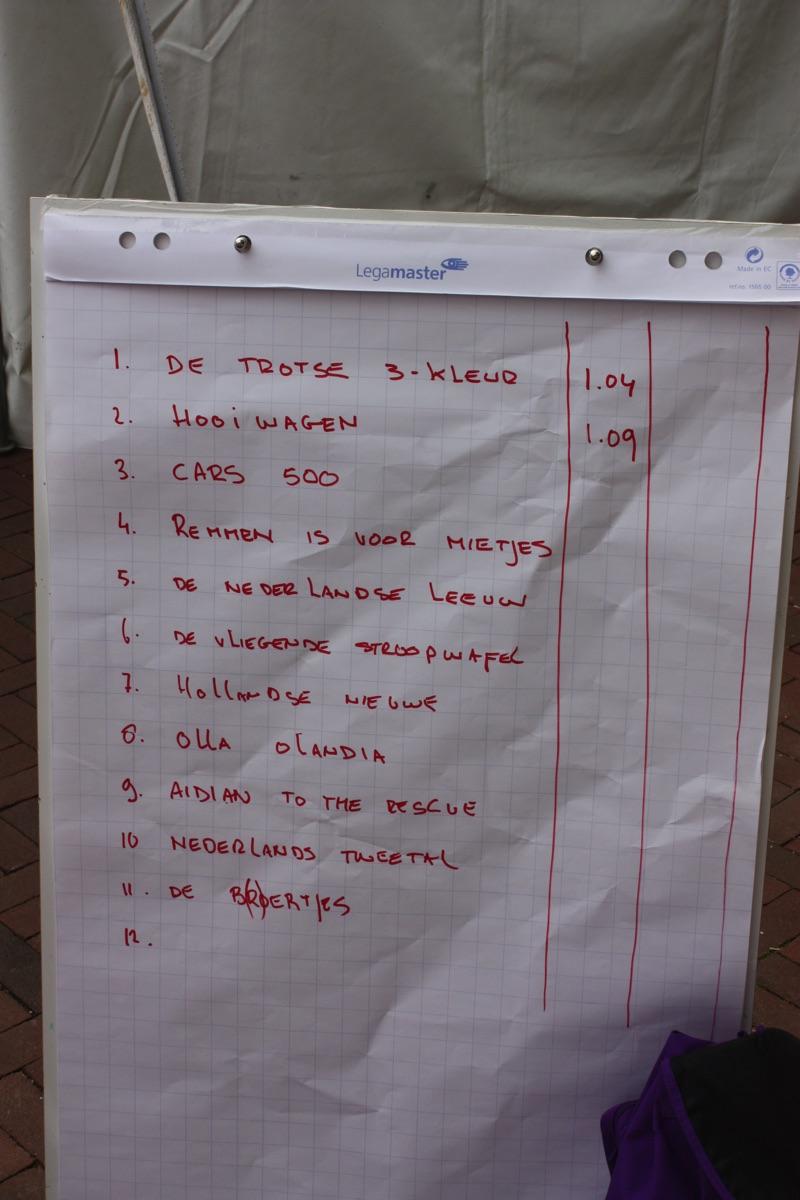 Legamaster
Made in EC
1. DE TROTSE 3-KLEUR 1.04
2. HOOiWAGEN 1.09
3. CARS 500
4. REMMEN IS VOOR MIETJES
5. DE NEDERLANDSE LEEUW
6. DE VLIEGENDE STROOPWAFEL
7. HOllANDSE NIEUWE
8. OllA OlANDIA
9. AIDIAN TO THE RESCUE
10 NEDERLANDS TWEETAL
11. DE B(R)OERTJES
12.